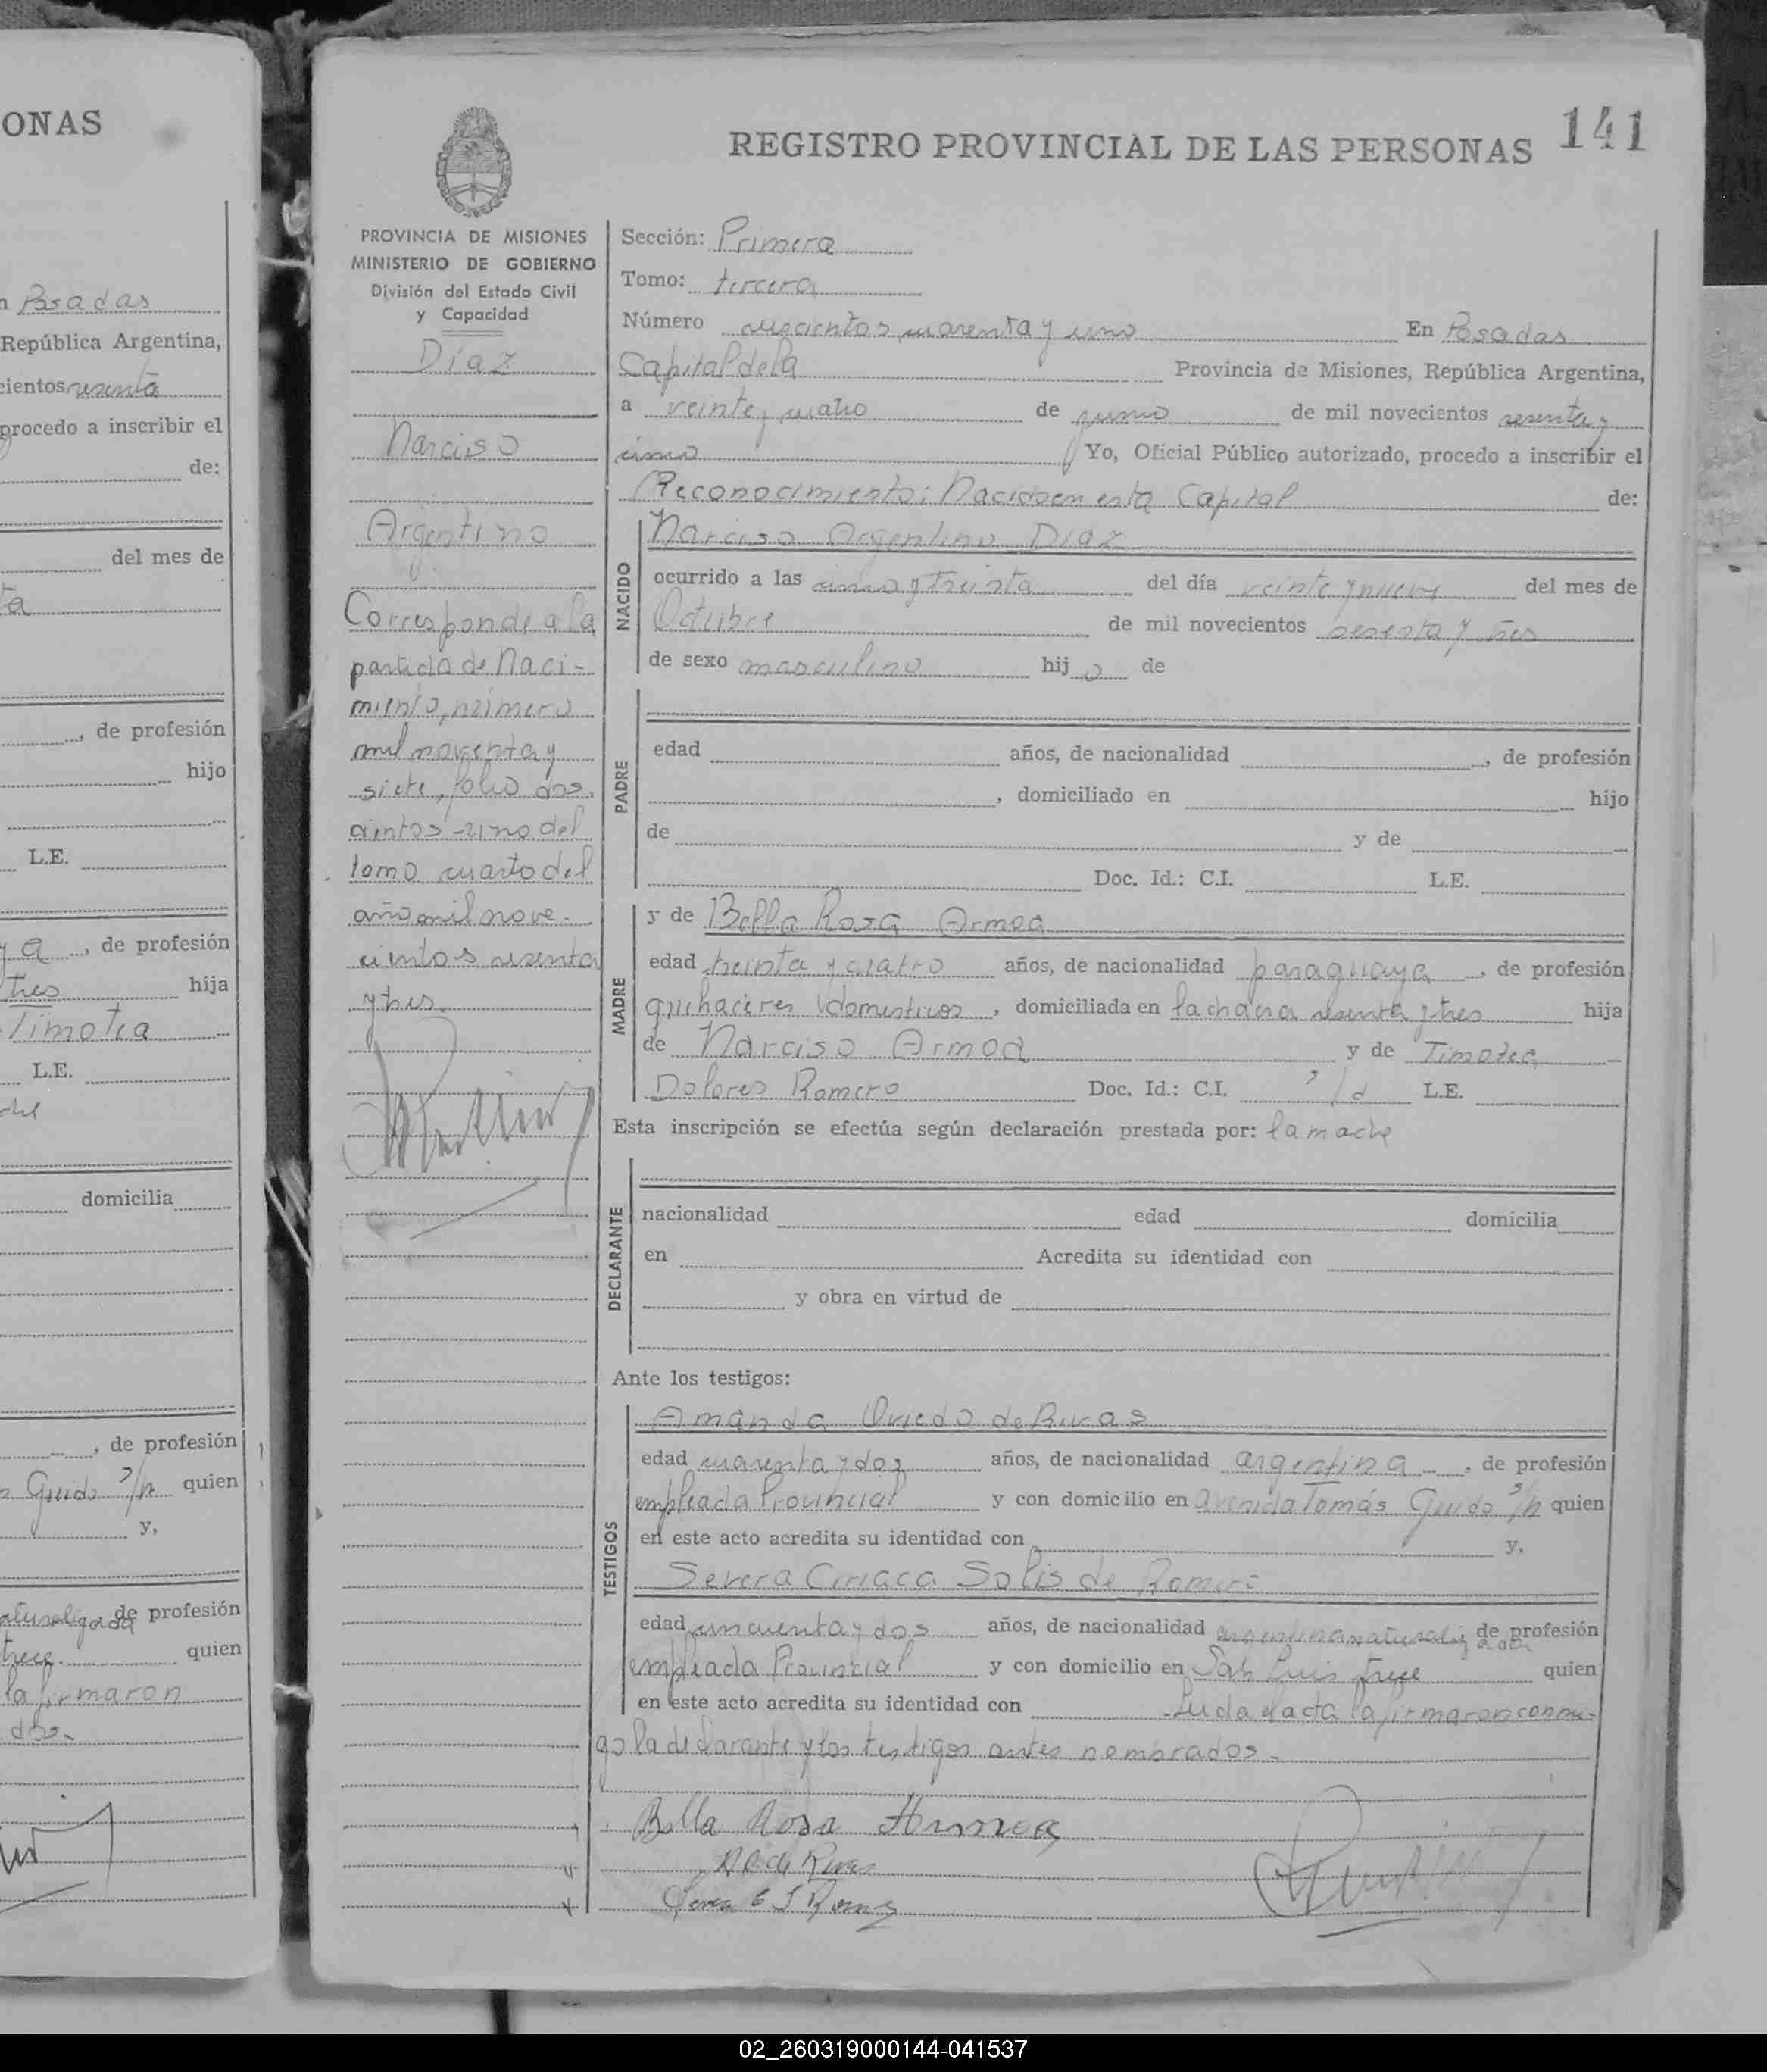 ONAS
n Posadas
República Argentina,
cientos sesenta
procedo a inscribir el
de:
del mes de
ta
, de profesión
hijo
L.E.
y a, de profesión
tres hija
Timotea
L.E.
domicilia
, de profesión
Guido s/n quien
y,
naturalizada de profesión
trece. quien
la firmaron
dos.-
141
REGISTRO PROVINCIAL DE LAS PERSONAS
PROVINCIA DE MISIONES
MINISTERIO DE GOBIERNO
División del Estado Civil
y Capacidad
Díaz
Narciso
Argentino
Corresponde a la
partida de Naci-
miento, número
mil noventa y
siete, folio dos.
cientos uno del
tomo cuarto del
año mil nove-
cientos sesenta
y tres.
Sección: Primera
Tomo: tercera
Número cuarenta y uno En Posadas
Capital de la Provincia de Misiones, República Argentina,
a veinte y cuatro de junio de mil novecientos sesenta y
cinco Yo, Oficial Público autorizado, procedo a inscribir el
Reconocimiento: Nacido en esta Capital de:
NACIDO
Narciso Argentino Díaz
ocurrido a las cinco y treinta del día veinte y nueve del mes de
Octubre de mil novecientos sesenta y tres
de sexo masculino hijo de
PADRE
edad años, de nacionalidad , de profesión
, domiciliado en hijo
de y de
Doc. Id.: C.I. L.E.
MADRE
y de Bella Rosa Armoa
edad treinta y cuatro años, de nacionalidad paraguaya, de profesión
quehaceres domesticos, domiciliada en la chacra sesenta y tres hija
de Narciso Armoa y de Timotea
Dolores Romero Doc. Id.: C.I. s/d L.E.
Esta inscripción se efectúa según declaración prestada por: la madre
DECLARANTE
nacionalidad edad domicilia
en Acredita su identidad con
y obra en virtud de
Ante los testigos:
TESTIGOS
Amanda Oviedo de Rivas
edad cuarenta y dos años, de nacionalidad argentina, de profesión
empleada Provincial y con domicilio en avenida Tomás Guido s/n quien
en este acto acredita su identidad con y,
Severa Ciriaca Solis de Romero
edad cincuenta y dos años, de nacionalidad argentina naturalizada de profesión
empleada Provincial y con domicilio en San Luis trece quien
en este acto acredita su identidad con -Leida el acta la firmaron conmi-
go la declarante y los testigos antes nombrados.-
Bella Rosa Armoa
A O de Rivas
Severa C S Romero
02_260319000144-041537